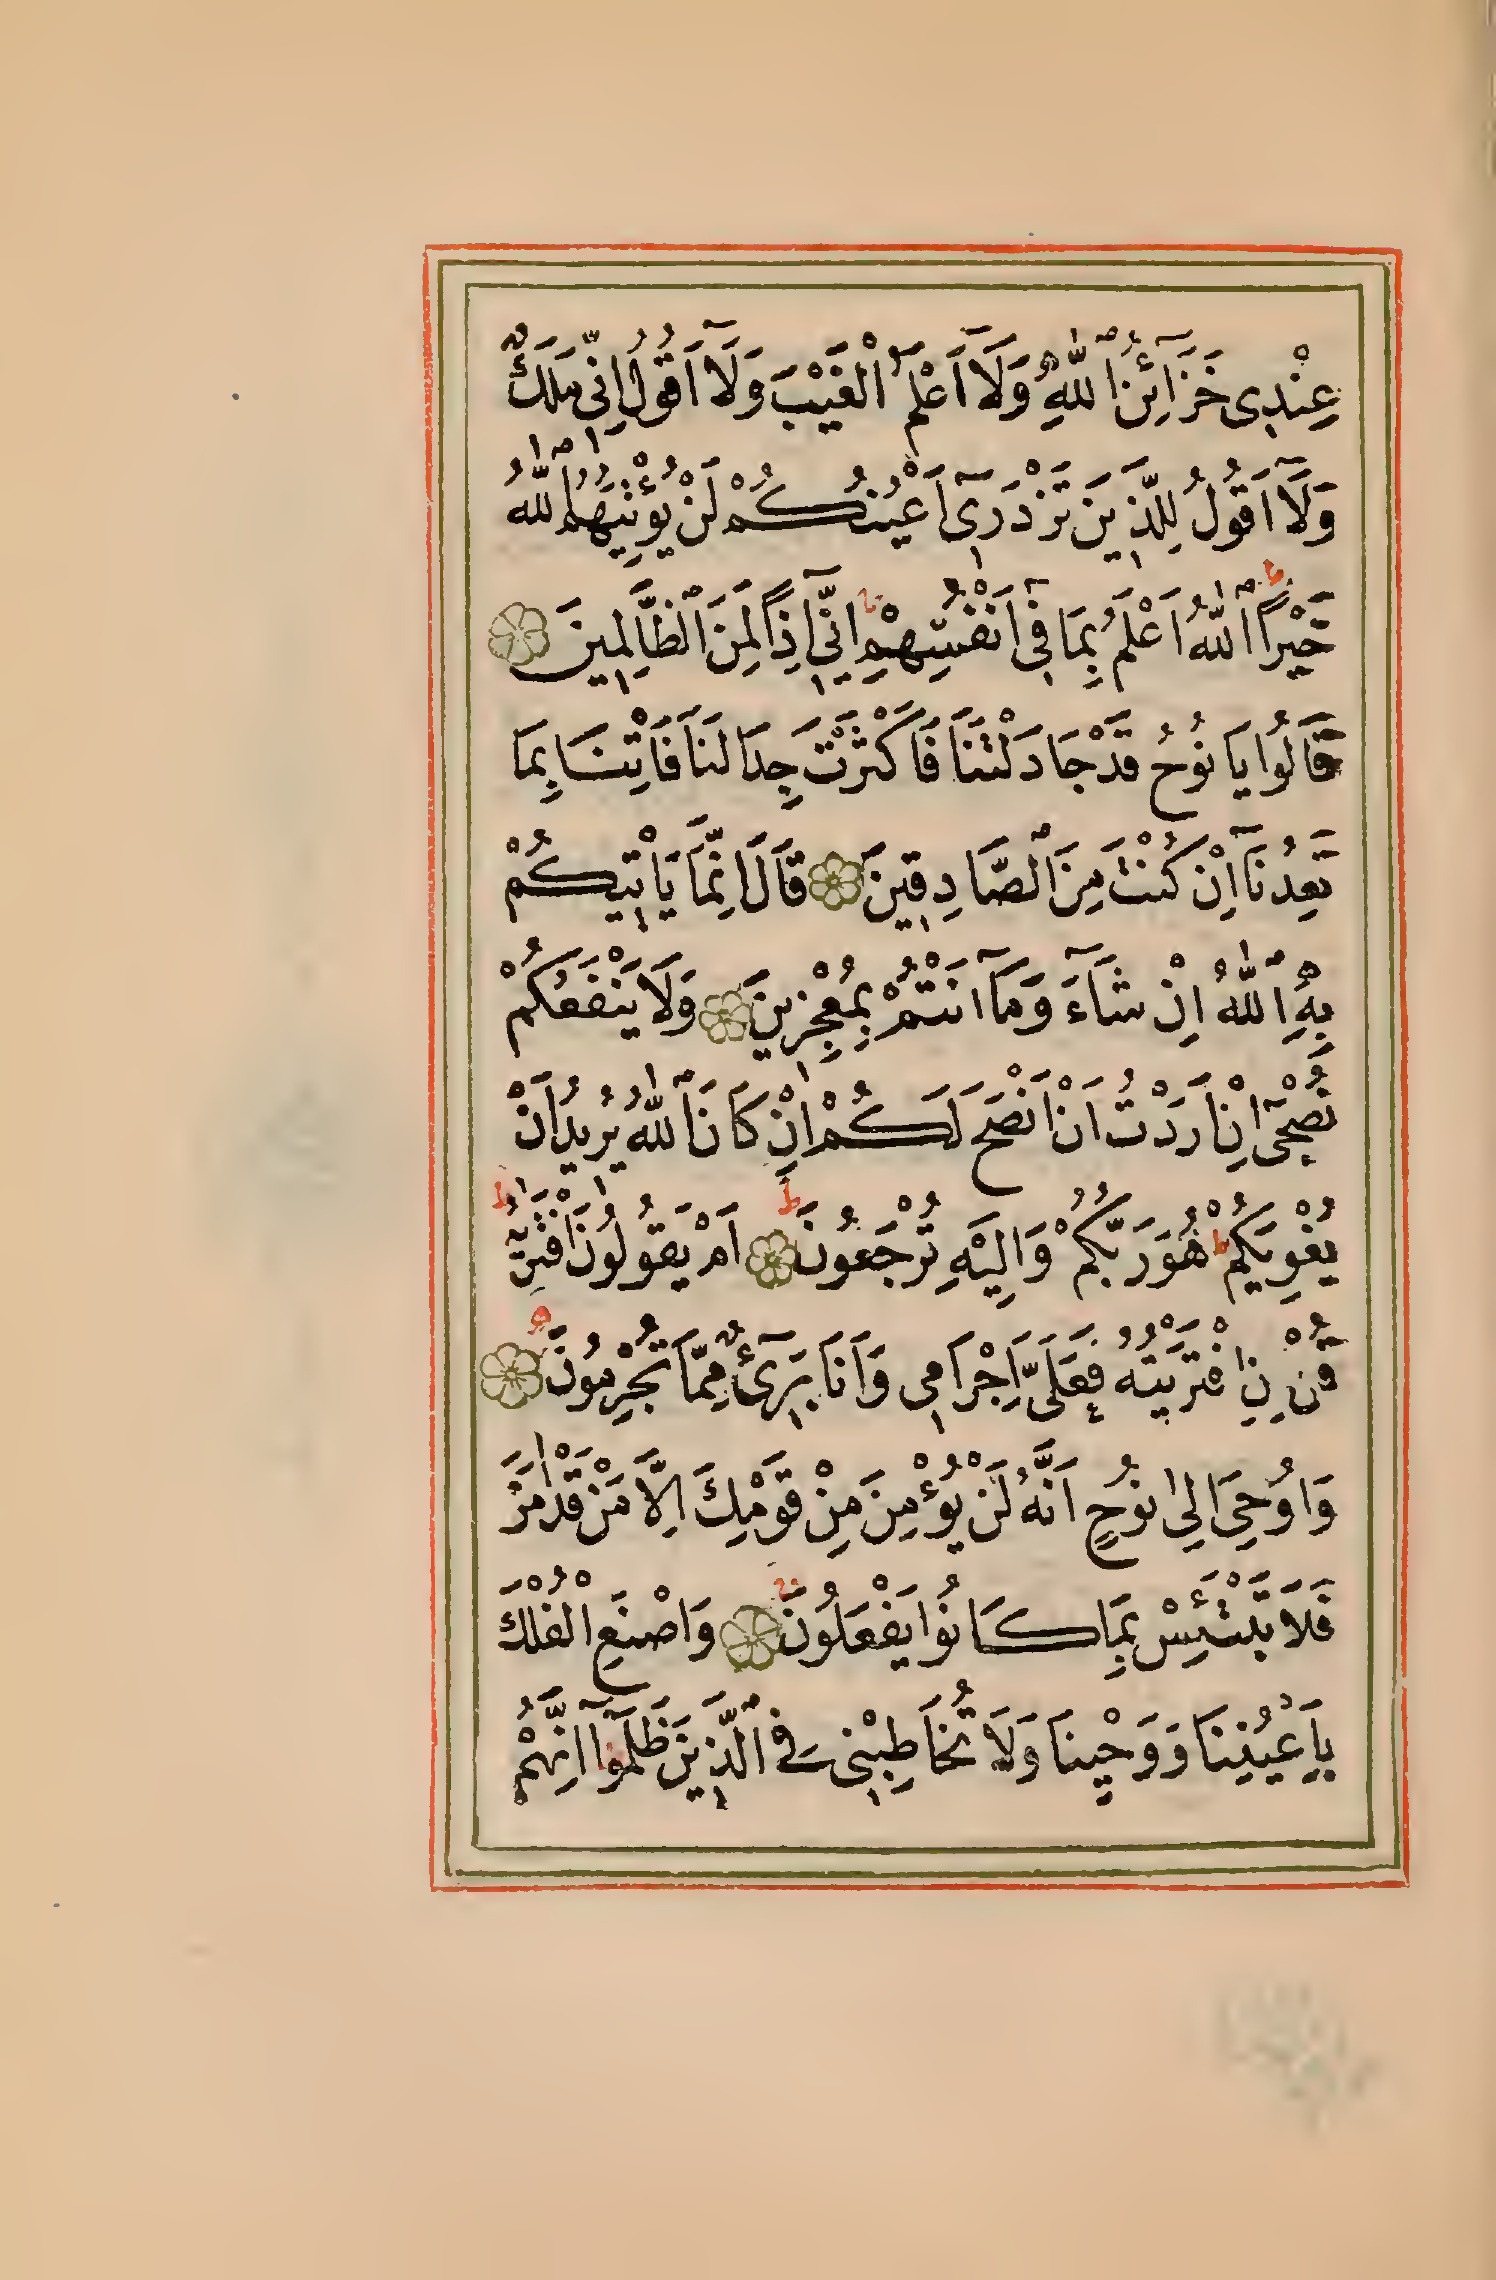 عِنْدِى خَزَآئِنُ ٱللّٰهِ وَلَآ اَعْلَمُ ٱلْغَيْبَ وَلَآ اَقُولُ اِنِّى مَلَكٌ
وَلَآ اَقُولُ لِلَّذِينَ تَزْدَرِىٓ اَعْيُنُكُمْ لَنْ يُؤْتِيَهُمُ ٱللّٰهُ
خَيْرًا ٱللّٰهُ اَعْلَمُ بِمَا فِىٓ اَنْفُسِهِمْ اِنِّىٓ اِذًا لَمِنَ ٱلظَّالِمِينَ
قَالُوا يَا نُوحُ قَدْ جَادَلْتَنَا فَاَكْثَرْتَ جِدَالَنَا فَاْتِنَا بِمَا
تَعِدُنَآ اِنْ كُنْتَ مِنَ ٱلصَّادِقِينَ قَالَ اِنَّمَا يَاْتِيكُمْ
بِهِ ٱللّٰهُ اِنْ شَآءَ وَمَآ اَنْتُمْ بِمُعْجِزِينَ وَلَا يَنْفَعُكُمْ
نُصْحِىٓ اِنْ اَرَدْتُ اَنْ اَنْصَحَ لَكُمْ اِنْ كَانَ ٱللّٰهُ يُرِيدُ اَنْ
يُغْوِيَكُمْ هُوَ رَبُّكُمْ وَاِلَيْهِ تُرْجَعُونَ اَمْ يَقُولُونَ افْتَرٰيهُ
اِنِ افْتَرَيْتُهُ فَعَلَىَّ اِجْرَامِى وَاَنَا بَرِىٓءٌ مِمَّا تُجْرِمُونَ
وَاُوحِىَ اِلٰى نُوحٍ اَنَّهُ لَنْ يُؤْمِنَ مِنْ قَوْمِكَ اِلَّا مَنْ قَدْ اٰمَنَ
فَلَا تَبْتَئِسْ بِمَا كَانُوا يَفْعَلُونَ وَاصْنَعِ الْفُلْكَ
بِاَعْيُنِنَا وَوَحْيِنَا وَلَا تُخَاطِبْنِى فِى ٱلَّذِينَ ظَلَمُوٓا اِنَّهُمْ